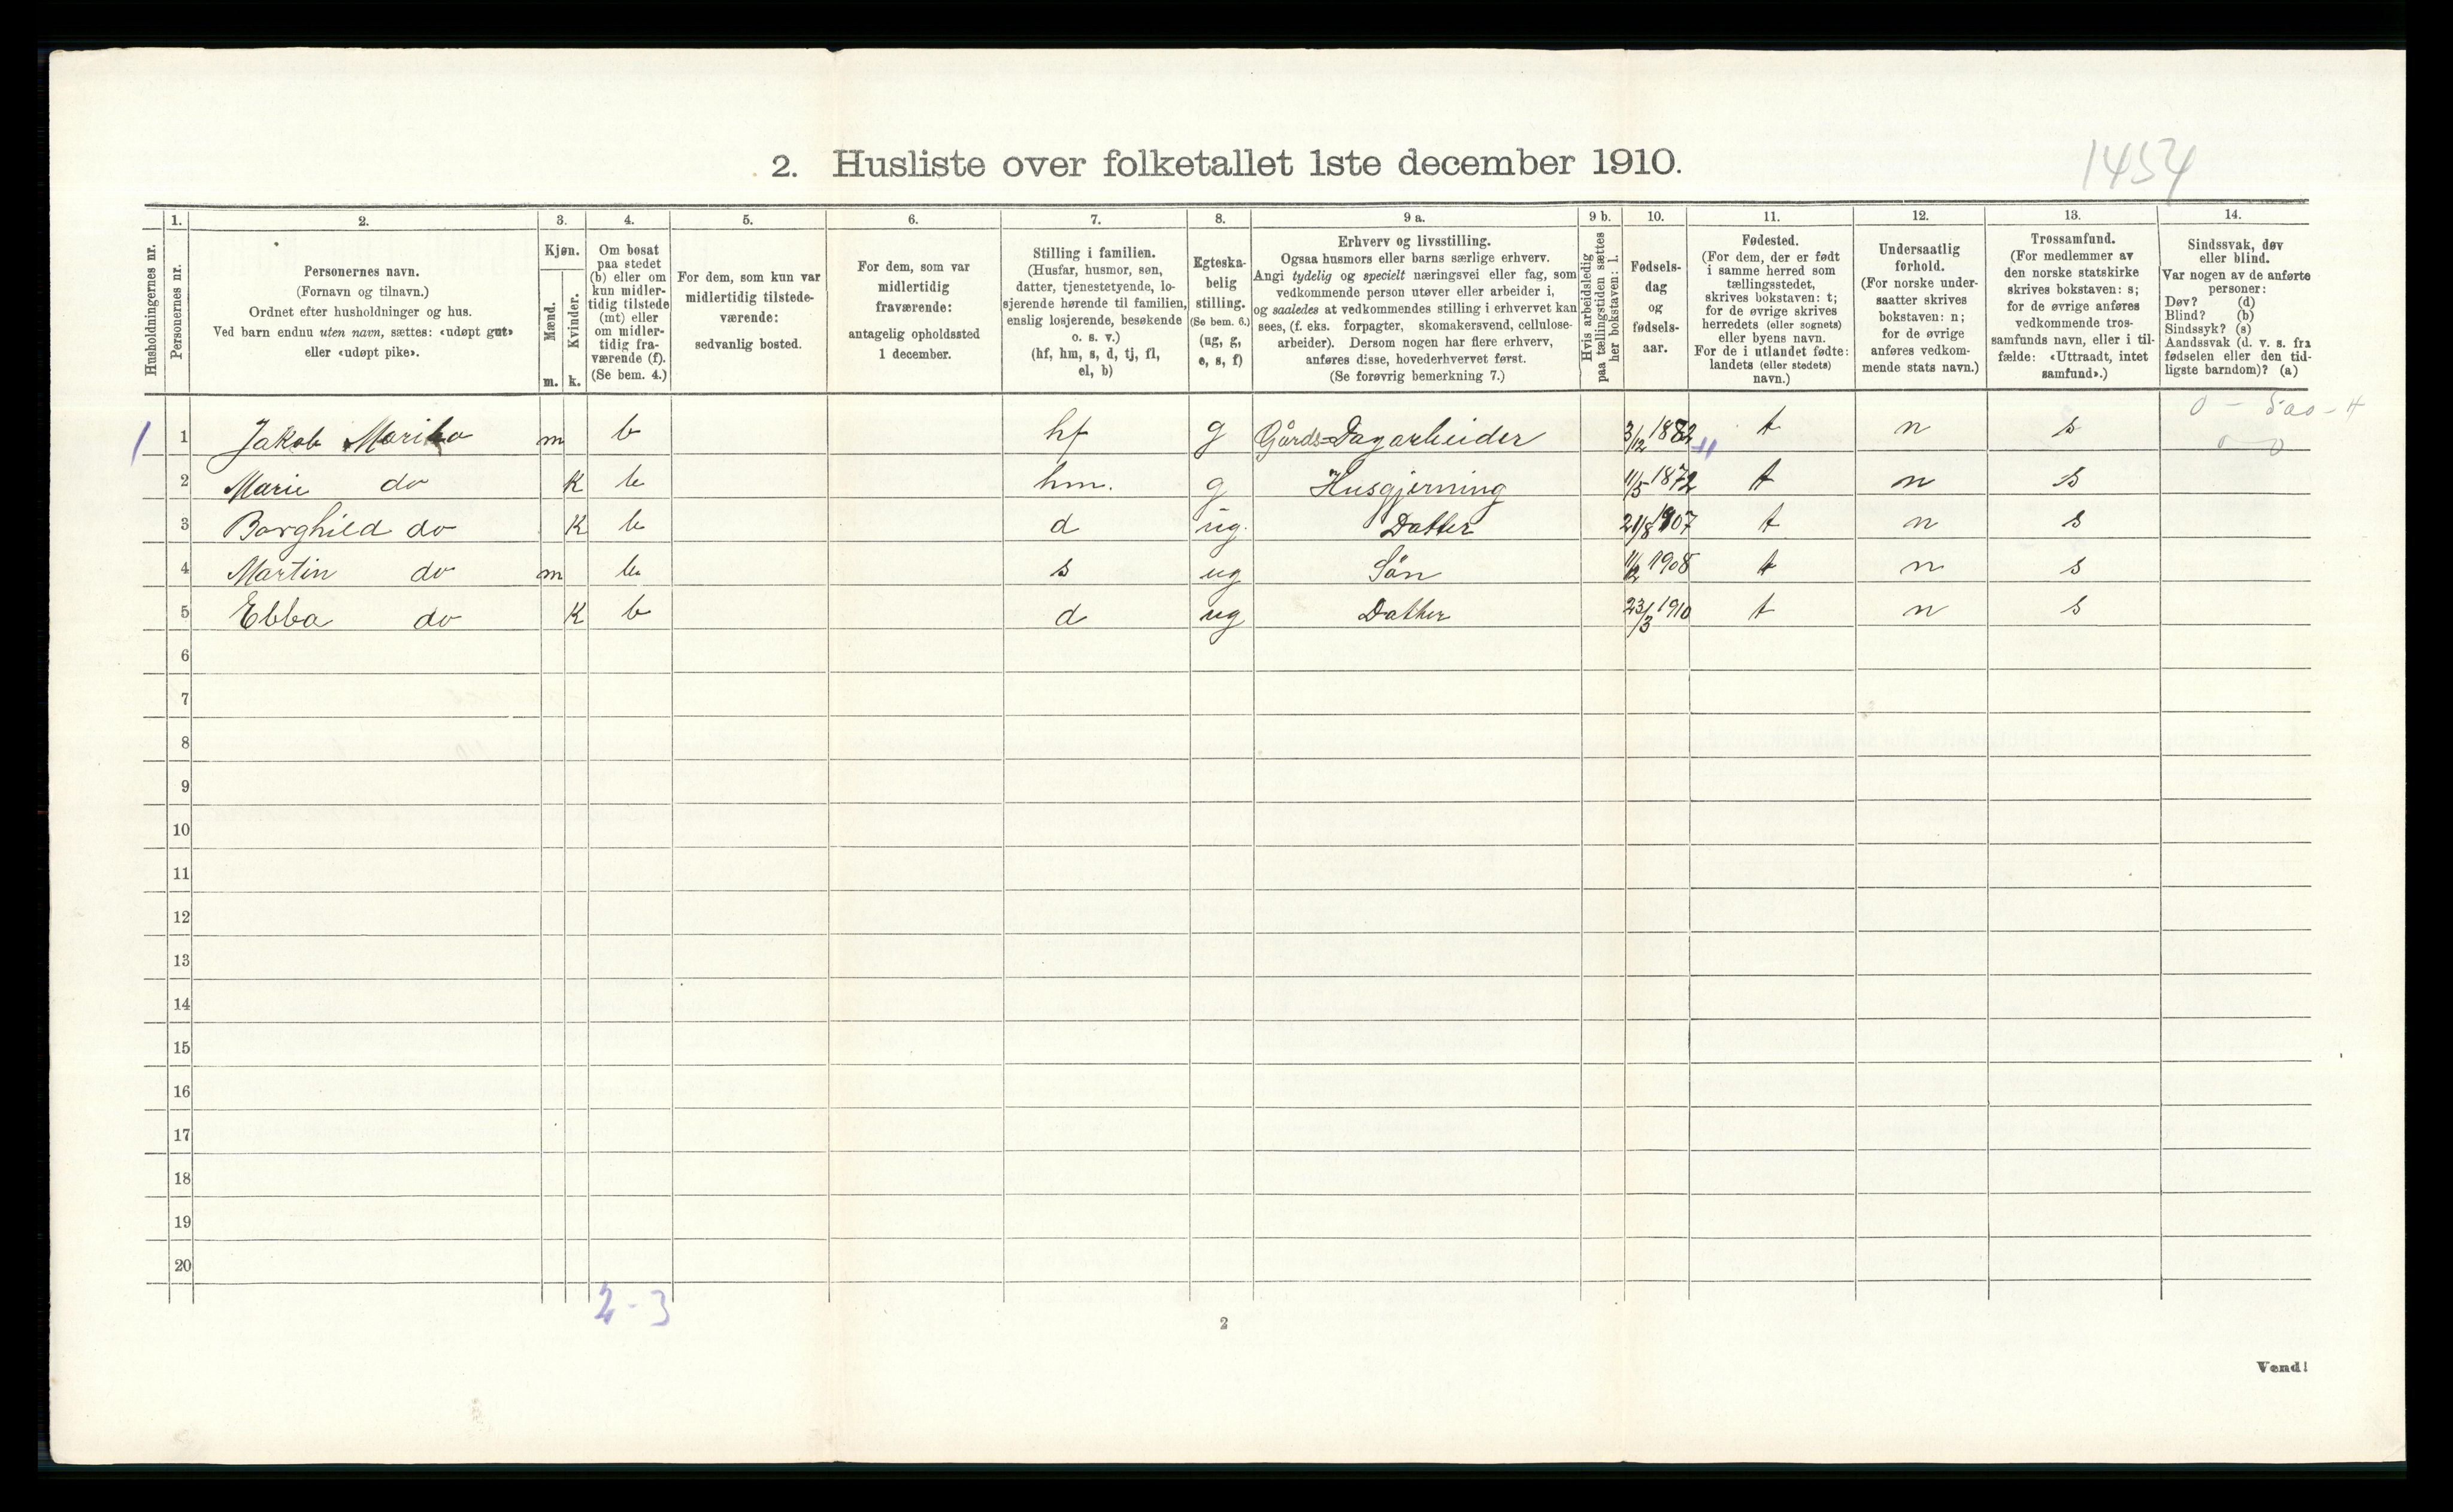 2. Husliste over folketallet 1ste december 1910.
1454
Husholdningernes nr.
1.
Personernes nr.
2.
Personernes navn.
(Fornavn og tilnavn.)
Ordnet efter husholdninger og hus.
Ved barn endnu uten navn, sættes: «udøpt gut»
eller «udøpt pike».
3.
Kjøn.
Mænd.
m.
Kvinder.
k.
4.
Om bosat
paa stedet
(b) eller om
kun midler-
tidig tilstede
(mt) eller
om midler-
tidig fra-
værende (f).
(Se bem. 4.)
5.
For dem, som kun var
midlertidig tilstede-
værende:
sedvanlig bosted.
6.
For dem, som var
midlertidig
fraværende:
antagelig opholdssted
1 december.
7.
Stilling i familien.
(Husfar, husmor, søn,
datter, tjenestetyende, lo-
sjerende hørende til familien,
enslig losjerende, besøkende
o. s. v.)
(hf, hm, s, d, tj, fl,
el, b)
8.
Egteska-
belig
stilling.
(Se bem. 6.)
(ug, g,
e, s, f)
9 a.
Erhverv og livsstilling.
Ogsaa husmors eller barns særlige erhverv.
Angi tydelig og specielt næringsvei eller fag, som
vedkommende person utøver eller arbeider i,
og saaledes at vedkommendes stilling i erhvervet kan
sees, (f. eks. forpagter, skomakersvend, cellulose-
arbeider). Dersom nogen har flere erhverv,
anføres disse, hovederhvervet først.
(Se forøvrig bemerkning 7.)
9 b.
Hvis arbeidsledig
paa tællingstiden sættes
her bokstaven: l.
10.
Fødsels-
dag
og
fødsels-
aar.
11.
Fødested.
(For dem, der er født
i samme herred som
tællingsstedet,
skrives bokstaven: t;
for de øvrige skrives
herredets (eller sognets)
eller byens navn.
For de i utlandet fødte:
landets (eller stedets)
navn.)
12.
Undersaatlig
forhold.
(For norske under-
saatter skrives
bokstaven: n;
for de øvrige
anføres vedkom-
mende stats navn.)
13.
Trossamfund.
(For medlemmer av
den norske statskirke
skrives bokstaven: s;
for de øvrige anføres
vedkommende tros-
samfunds navn, eller i til-
fælde: «Uttraadt, intet
samfund».)
14.
Sindssvak, døv
eller blind.
Var nogen av de anførte
personer:
Døv? (d)
Blind? (b)
Sindssyk? (s)
Aandssvak (d. v. s. fra
fødselen eller den tid-
ligste barndom)? (a)
1 1 Jakob m b hf g Gårds=Dagarbeider 3/12 1882 t n s
2 Marie do K b hm. g Husgjerning 11/5 1872 t n s
3 Borghild do K b d ug. Datter 21/8 1907 t n s
4 Martin do m b s ug Sön 11/2 1908 t n s
5 Ebba do K b d ug Datter 23/3 1910 t n s
6
7
8
9
10
11
12
13
14
15
16
17
18
19
20
2 - 3
2
Vend!